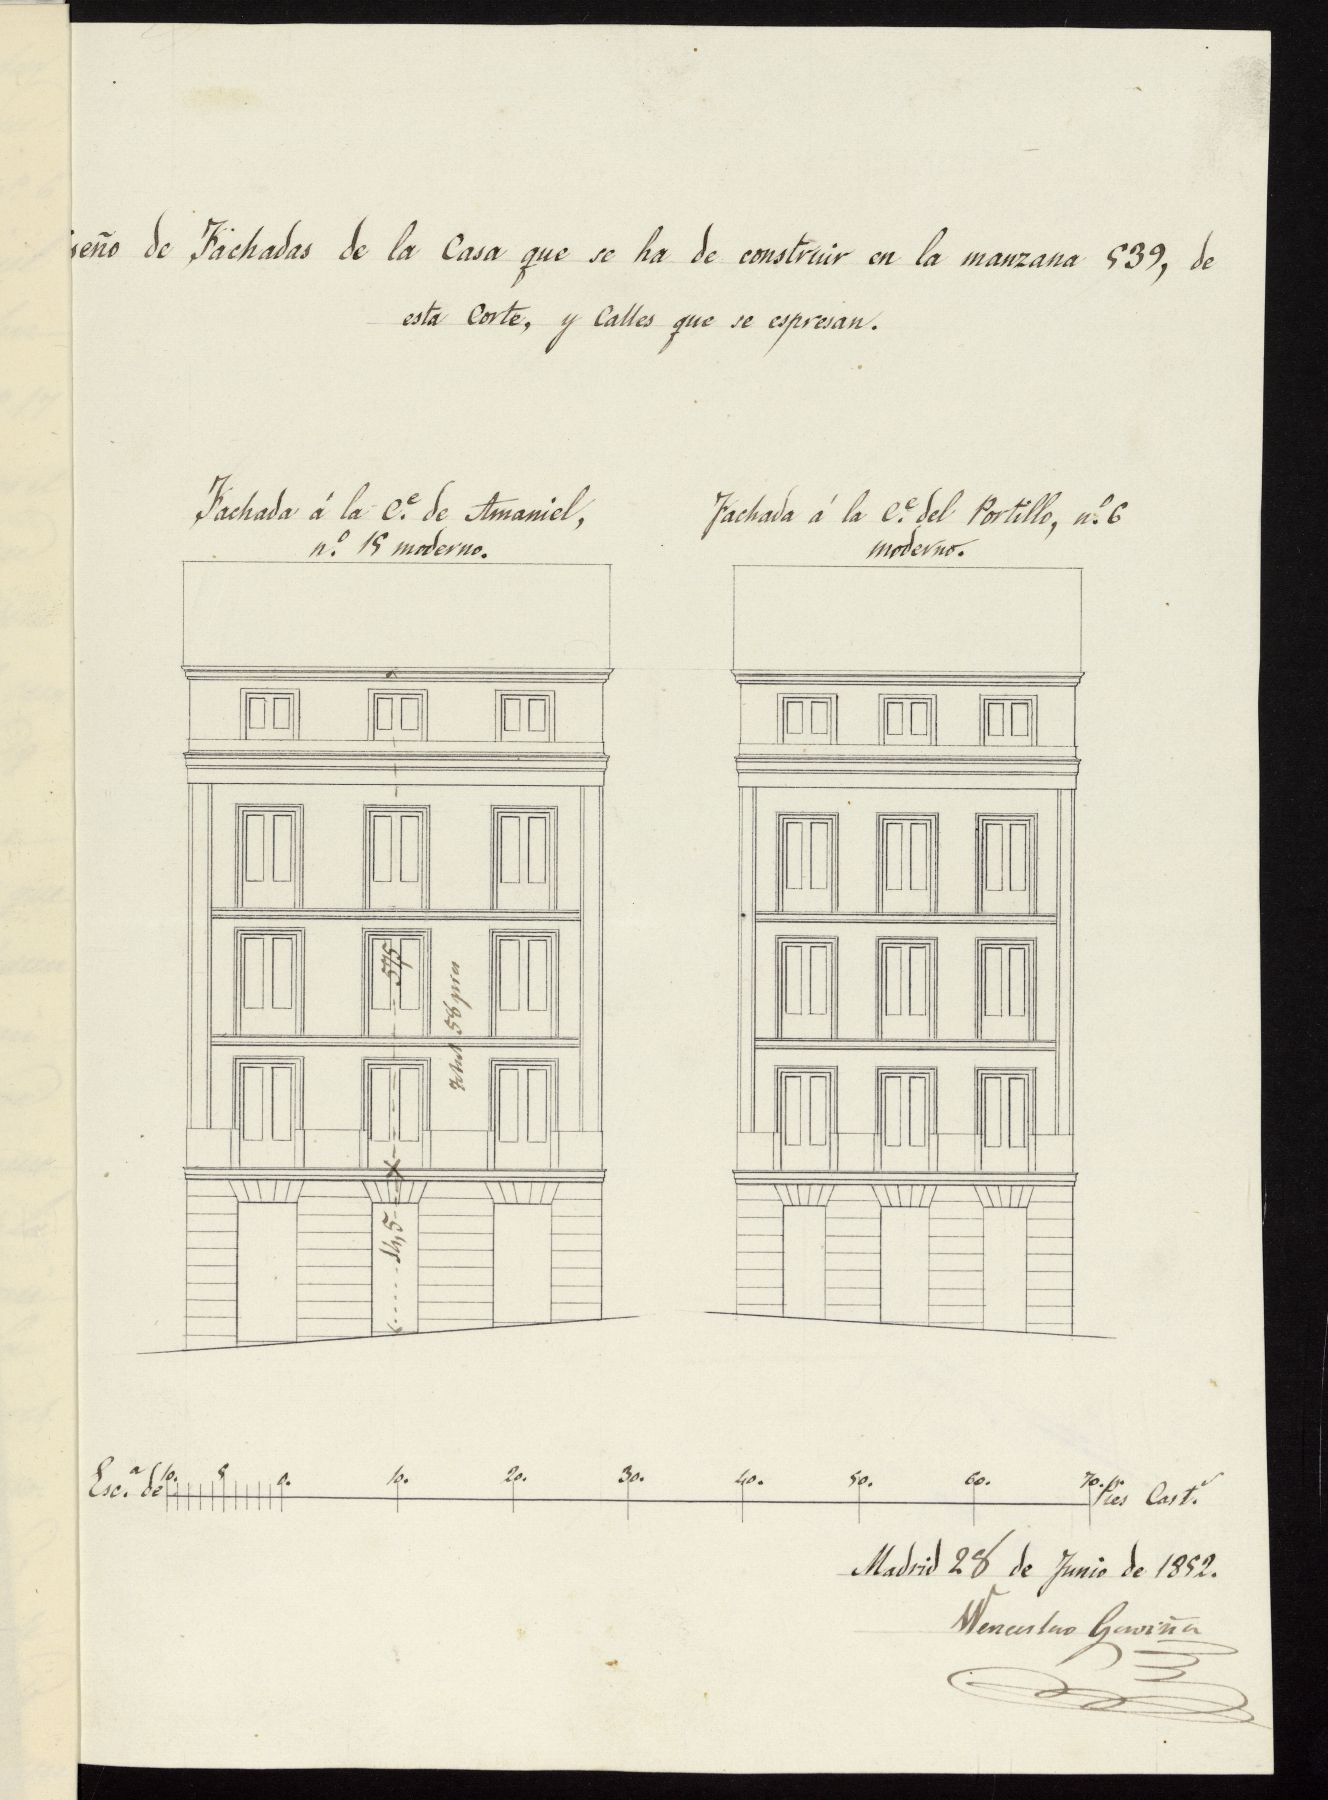 seño de Fachadas de la Casa que se ha de construir en la manzana 539, de
esta Corte, y Calles que se espresan.
Fachada á la C.e de Amaniel,
n.o 15 moderno.
Fachada á la C.e del Portillo, n.o 6
moderno.
575
total 58 pies
14,5
Esc.a de 10. 5 0. 10. 20. 30. 40. 50. 60. 70. Pies Cast.s
Madrid 28 de Junio de 1852.
Wenceslao Gaviña